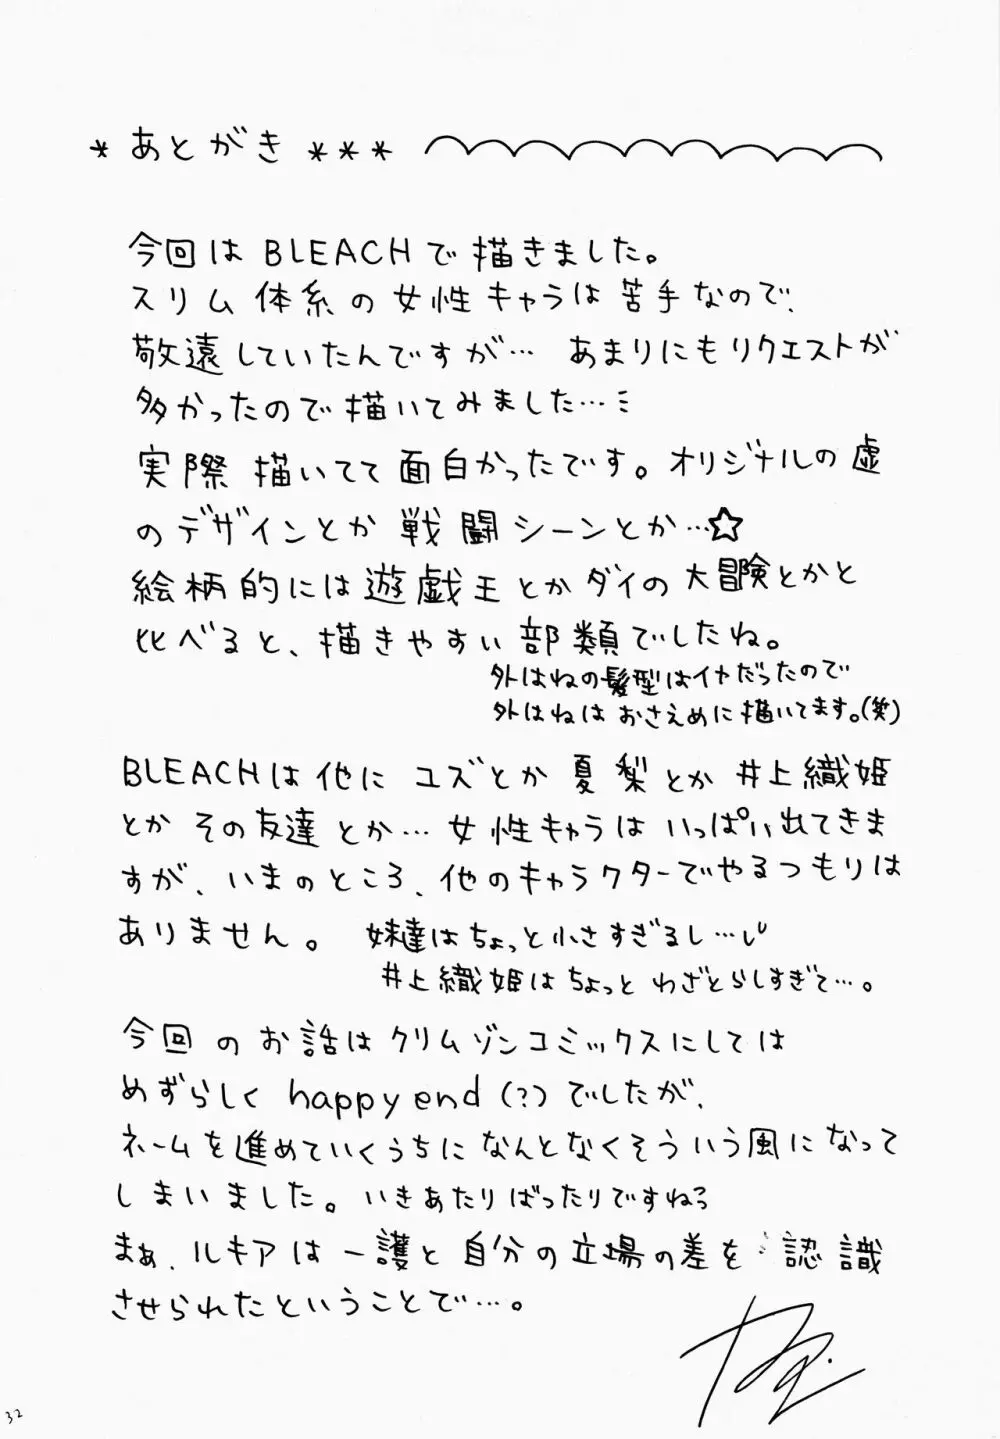 * あとがき ***
今回は BLEACHで描きました。
スリム体系の女性キャラは苦手なので、
敬遠していたんですが… あまりにもリクエストが
多かったので描いてみました…
実際描いてて面白かったです。オリジナルの虚
のデザインとか戦闘シーンとか…☆
絵柄的には遊戯王とかダイの大冒険とかと
比べると、描きやすい部類でしたね。
外はねの髪型はイヤだったので
外はねはおさえめに描いてます。(笑)
BLEACHは他にユズとか夏梨とか井上織姫
とかその友達とか…女性キャラはいっぱい出てきま
すが、いまのところ、他のキャラクターでやるつもりは
ありません。 妹達はちょっと小さすぎるし…
井上織姫はちょっとわざとらしすぎて…。
今回のお話はクリムゾンコミックスにしては
めずらしく happy end (?)でしたが、
ネームを進めていくうちになんとなくそういう風になって
しまいました。いきあたりばったりですねぇ
まぁ、ルキアは一護と自分の立場の差を認識
させられたということで…。
32